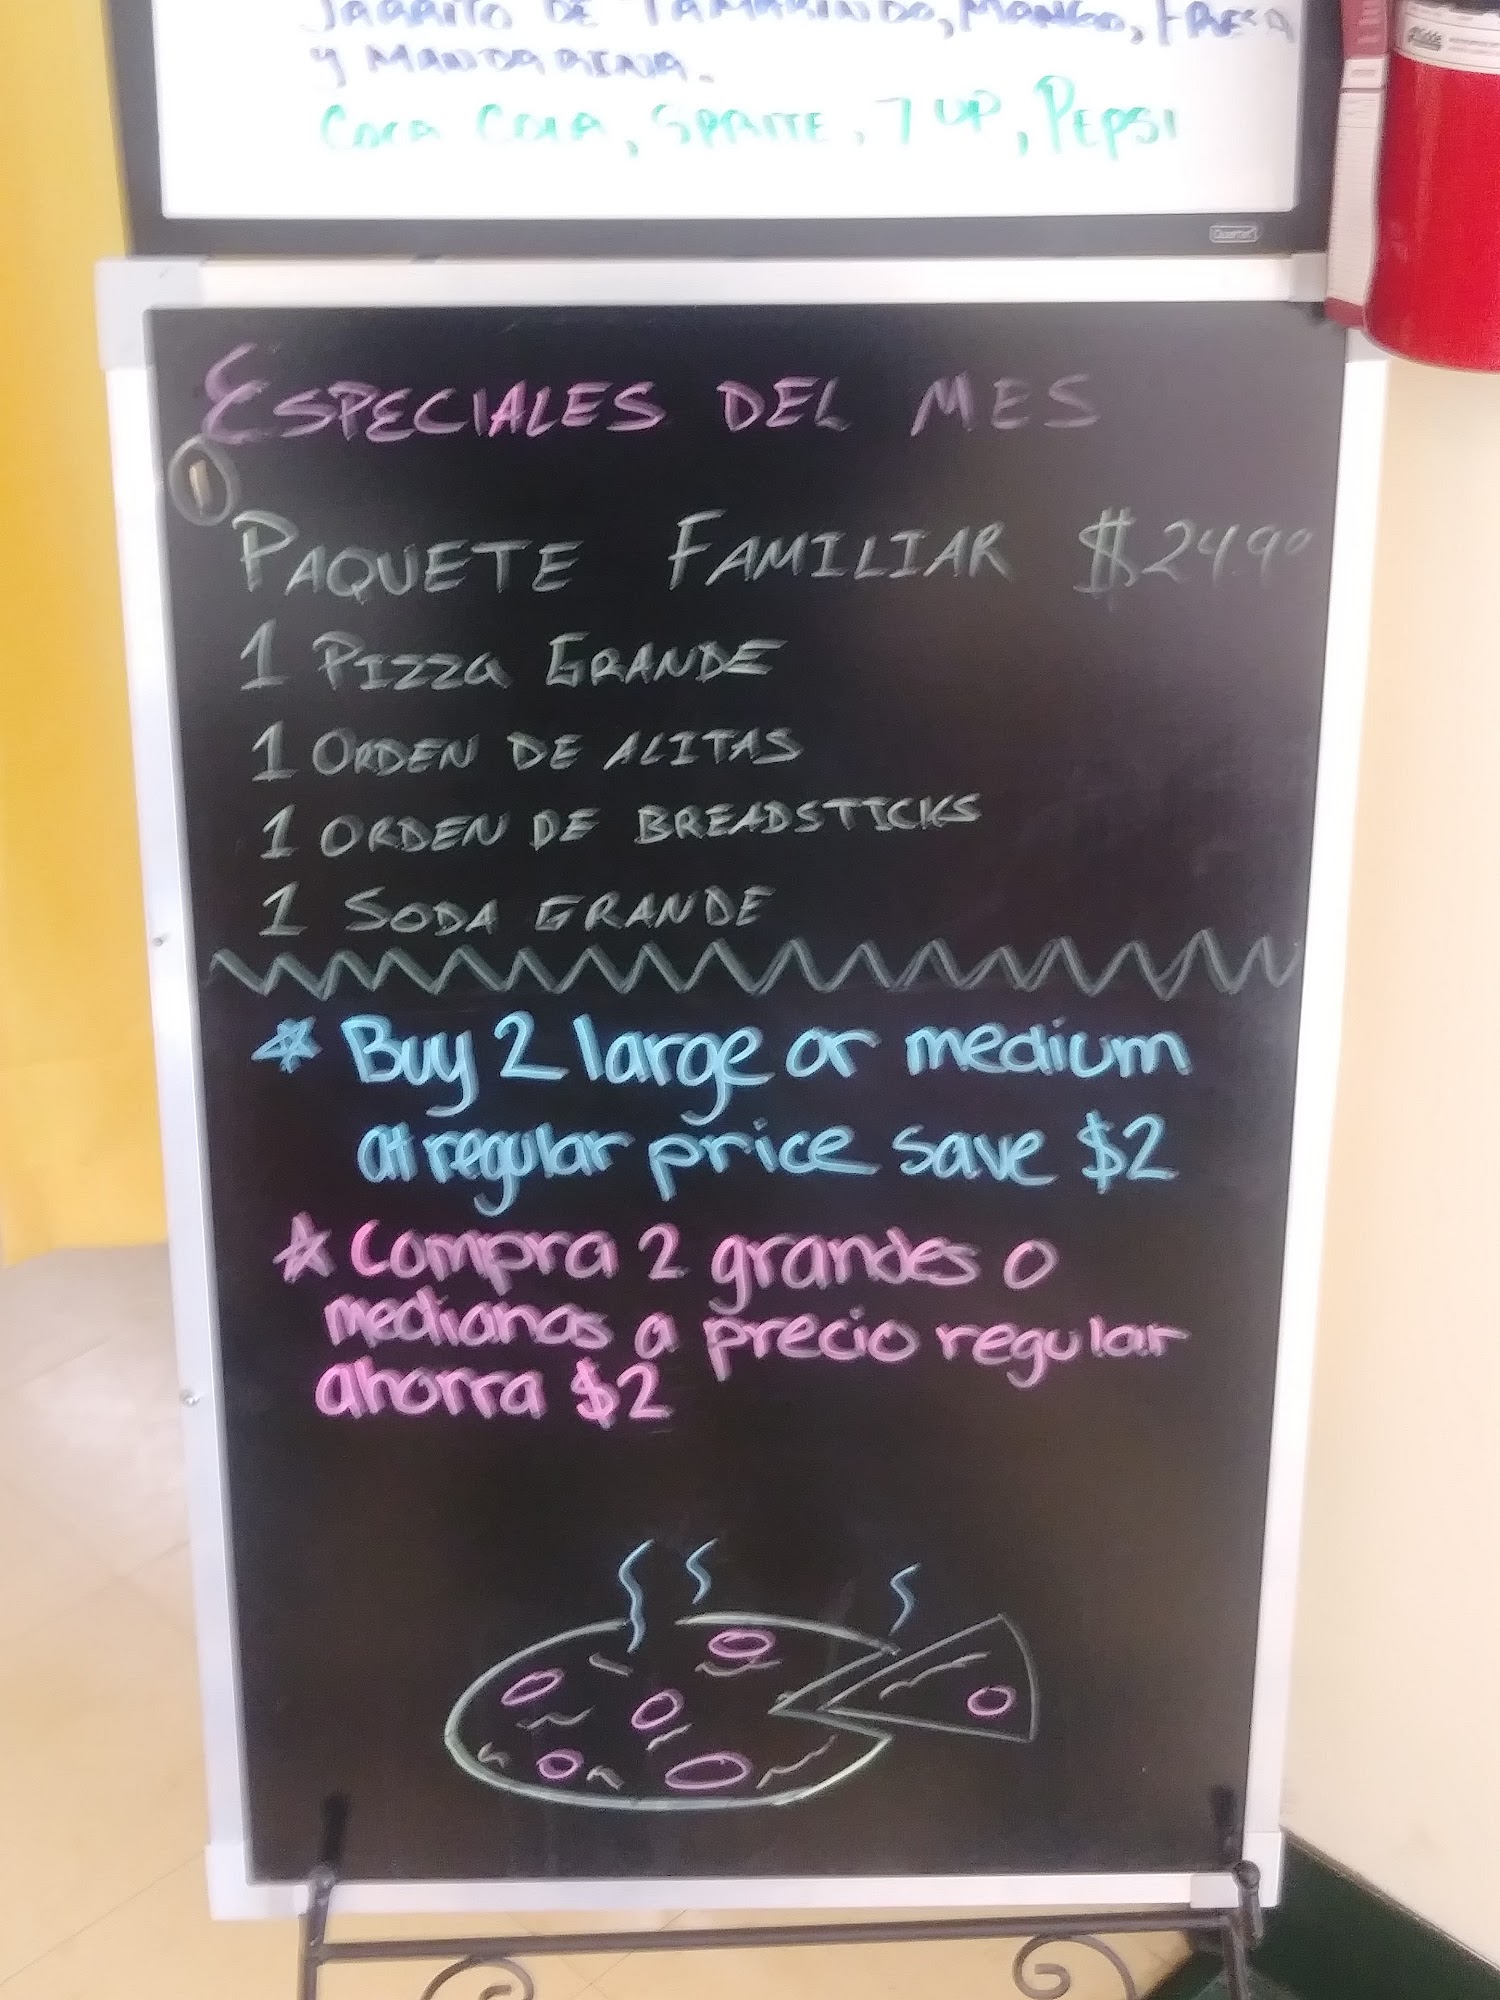 JARRITO DE TAMARINDO, MANGO, FRESA
Y MANDARINA.
COCA COLA, SPRITE, 7 UP, PEPSI
Quartet
ESPECIALES DEL MES
PAQUETE FAMILIAR $24.99
1 PIZZA GRANDE
1 ORDEN DE ALITAS
1 ORDEN DE BREADSTICKS
1 SODA GRANDE
Buy 2 large or medium
at regular price save $2
Compra 2 grandes o
medianas a precio regular
ahorra $2